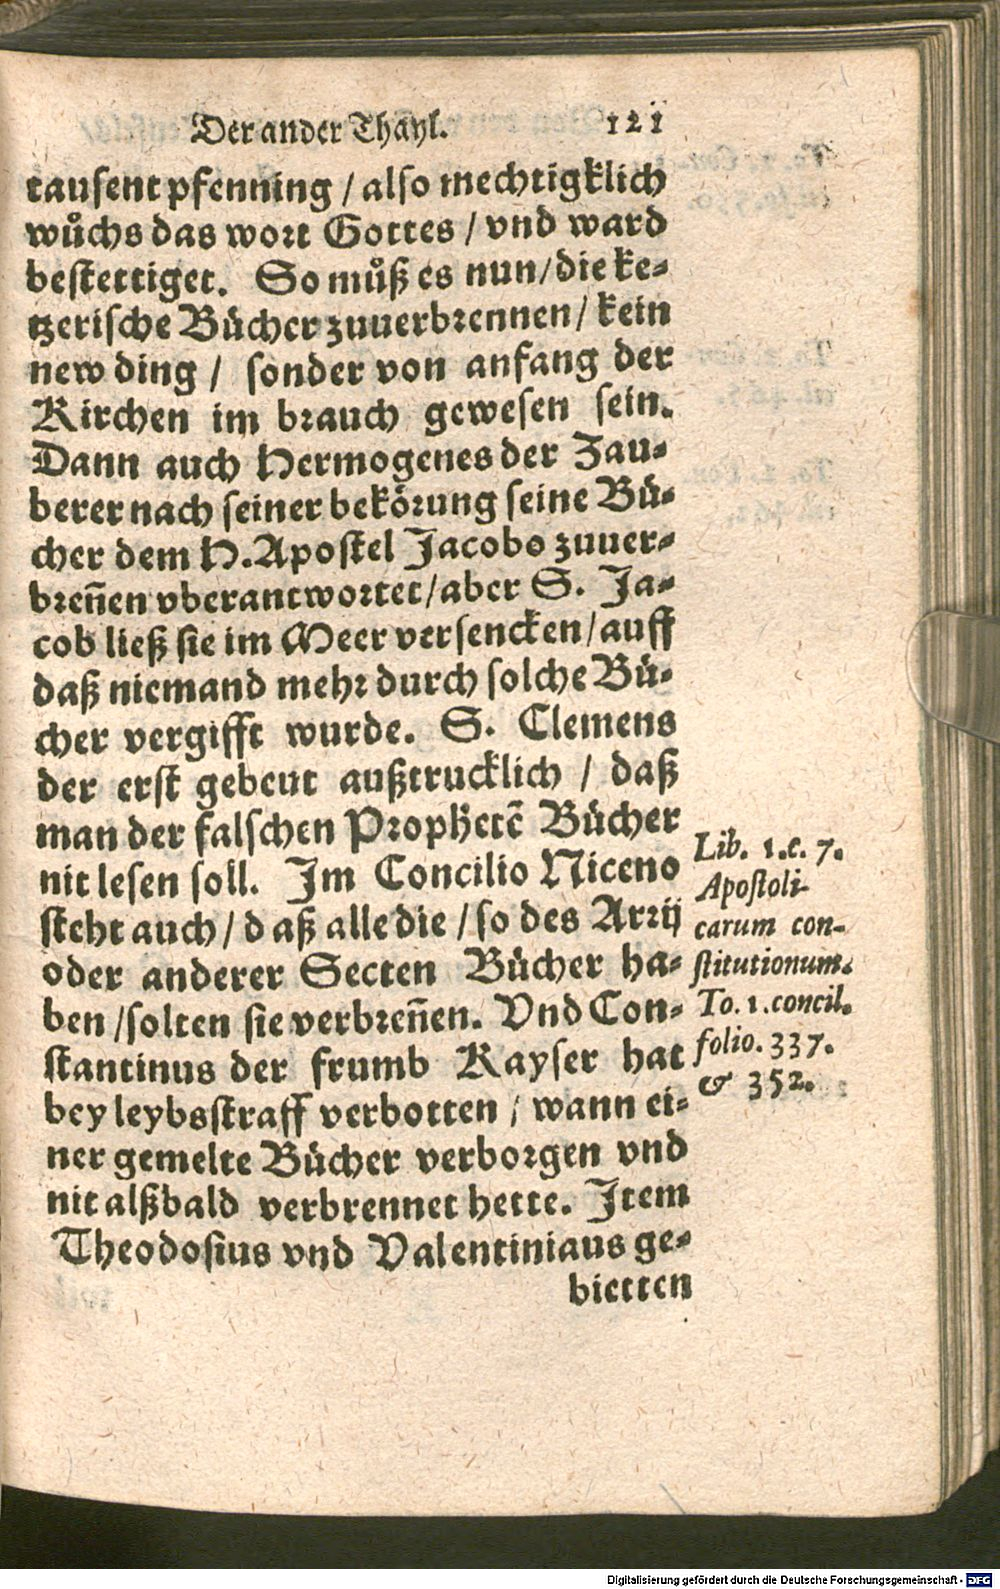 Der ander Thayl. 121
tausent pfenning / also mechtigklich
wůchs das wort Gottes / vnd ward
bestettiget. So můß es nun / die ke-
tzerische Bücher zuuerbrennen / kein
new ding / sonder von anfang der
Kirchen im brauch gewesen sein.
Dann auch Hermogenes der Zau-
berer nach seiner bekörung seine Bü-
cher dem H. Apostel Jacobo zuuer-
breñen vberantwortet / aber S. Ja-
cob ließ sie im Meer versencken / auff
daß niemand mehr durch solche Bü-
cher vergifft wurde. S. Clemens
der erst gebeut außtrucklich / daß
man der falschen Prophetē Bücher
nit lesen soll. Im Concilio Niceno
steht auch / daß alle die / so des Arrij
oder anderer Secten Bücher ha-
ben / solten sie verbreñen. Vnd Con-
stantinus der frumb Kayser hat
bey leybsstraff verbotten / wann ei-
ner gemelte Bücher verborgen vnd
nit alßbald verbrennet hette. Item
Theodosius vnd Valentiniaus ge-
bietten
Lib. 1. c. 7.
Apostoli-
carum con-
stitutionum.
To. 1. concil.
folio. 337.
& 352.
Digitalisierung gefördert durch die Deutsche Forschungsgemeinschaft - DFG